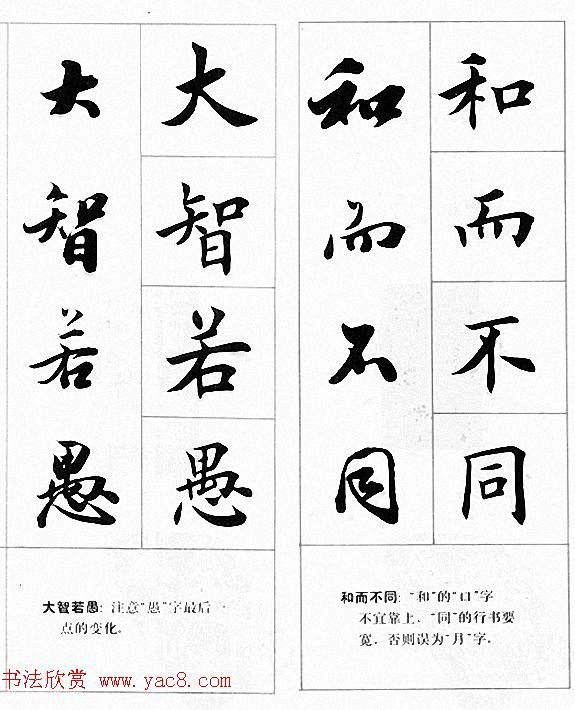 和而不同
和而不同
和而不同：“和”的“口”字
不宜靠上，“同”的行书要
宽，否则误为“月”字。
大智若愚
大智若愚
大智若愚：注意“愚”字最后一
点的变化。
书法欣赏 www.yac8.com